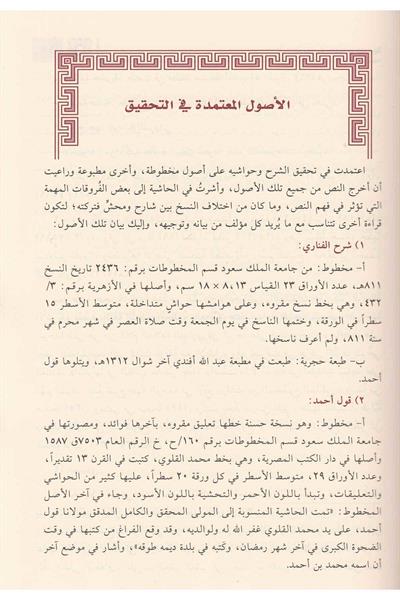 الأصول المعتمدة في التحقيق
اعتمدت في تحقيق الشرح وحواشيه على أصول مخطوطة، وأخرى مطبوعة وراعيت
أن أخرج النص من جميع تلك الأصول، وأشرتُ في الحاشية إلى بعض الفُروقات المهمة
التي تؤثر في فهم النص، وما كان من اختلاف النسخ بين شارح ومحشٍّ فتركته؛ لتكون
قراءة أخرى تتناسب مع ما يُريد كل مؤلف من بيانه وتوجيهه، وإليك بيان تلك الأصول:
١) شرح الفناري:
أ- مخطوط: من جامعة الملك سعود قسم المخطوطات برقم: ٢٤٣٦ تاريخ النسخ
٨١١هـ، عدد الأوراق ٢٣ القياس ١٣،٨ × ١٨ سم، وأصلها في الأزهرية برقم: ٣/
٤٣٢، وهي بخط نسخ مقروء، وعلى هوامشها حواشٍ متداخلة، متوسط الأسطر ١٥
سطراً في الورقة، وختمها الناسخ في يوم الجمعة وقت صلاة العصر في شهر محرم في
سنة ٨١١، ولم أعرف ناسخها.
ب- طبعة حجرية: طبعت في مطبعة عبد الله أفندي آخر شوال ١٣١٢هـ، ويتلوها قول
أحمد.
٢) قول أحمد:
أ- مخطوط: وهو نسخة حسنة خطها تعليق مقروء، بآخرها فوائد، ومصورتها في
جامعة الملك سعود قسم المخطوطات برقم ١٦٠/ح، خ الرقم العام ٧٥٠٣ق ١٥٨٧
وأصلها في دار الكتب المصرية، وهي بخط محمد القلوي، كتبت في القرن ١٣ تقديراً،
وعدد الأوراق ٢٩، متوسط الأسطر في كل ورقة ٢٠ سطراً، عليها كثير من الحواشي
والتعليقات، وتبدأ باللون الأحمر والتحشية باللون الأسود، وجاء في آخر الأصل
المخطوط: «تمت الحاشية المنسوبة إلى المولى المحقق والكامل المدقق مولانا قول
أحمد، على يد محمد القلوي غفر الله له ولوالديه، وقد وقع الفراغ من كتبها في وقت
الضحوة الكبرى في آخر شهر رمضان، وكَتبه في بلدة ديمه طوقه»، وأشار في موضع آخر
أن اسمه محمد بن أحمد.